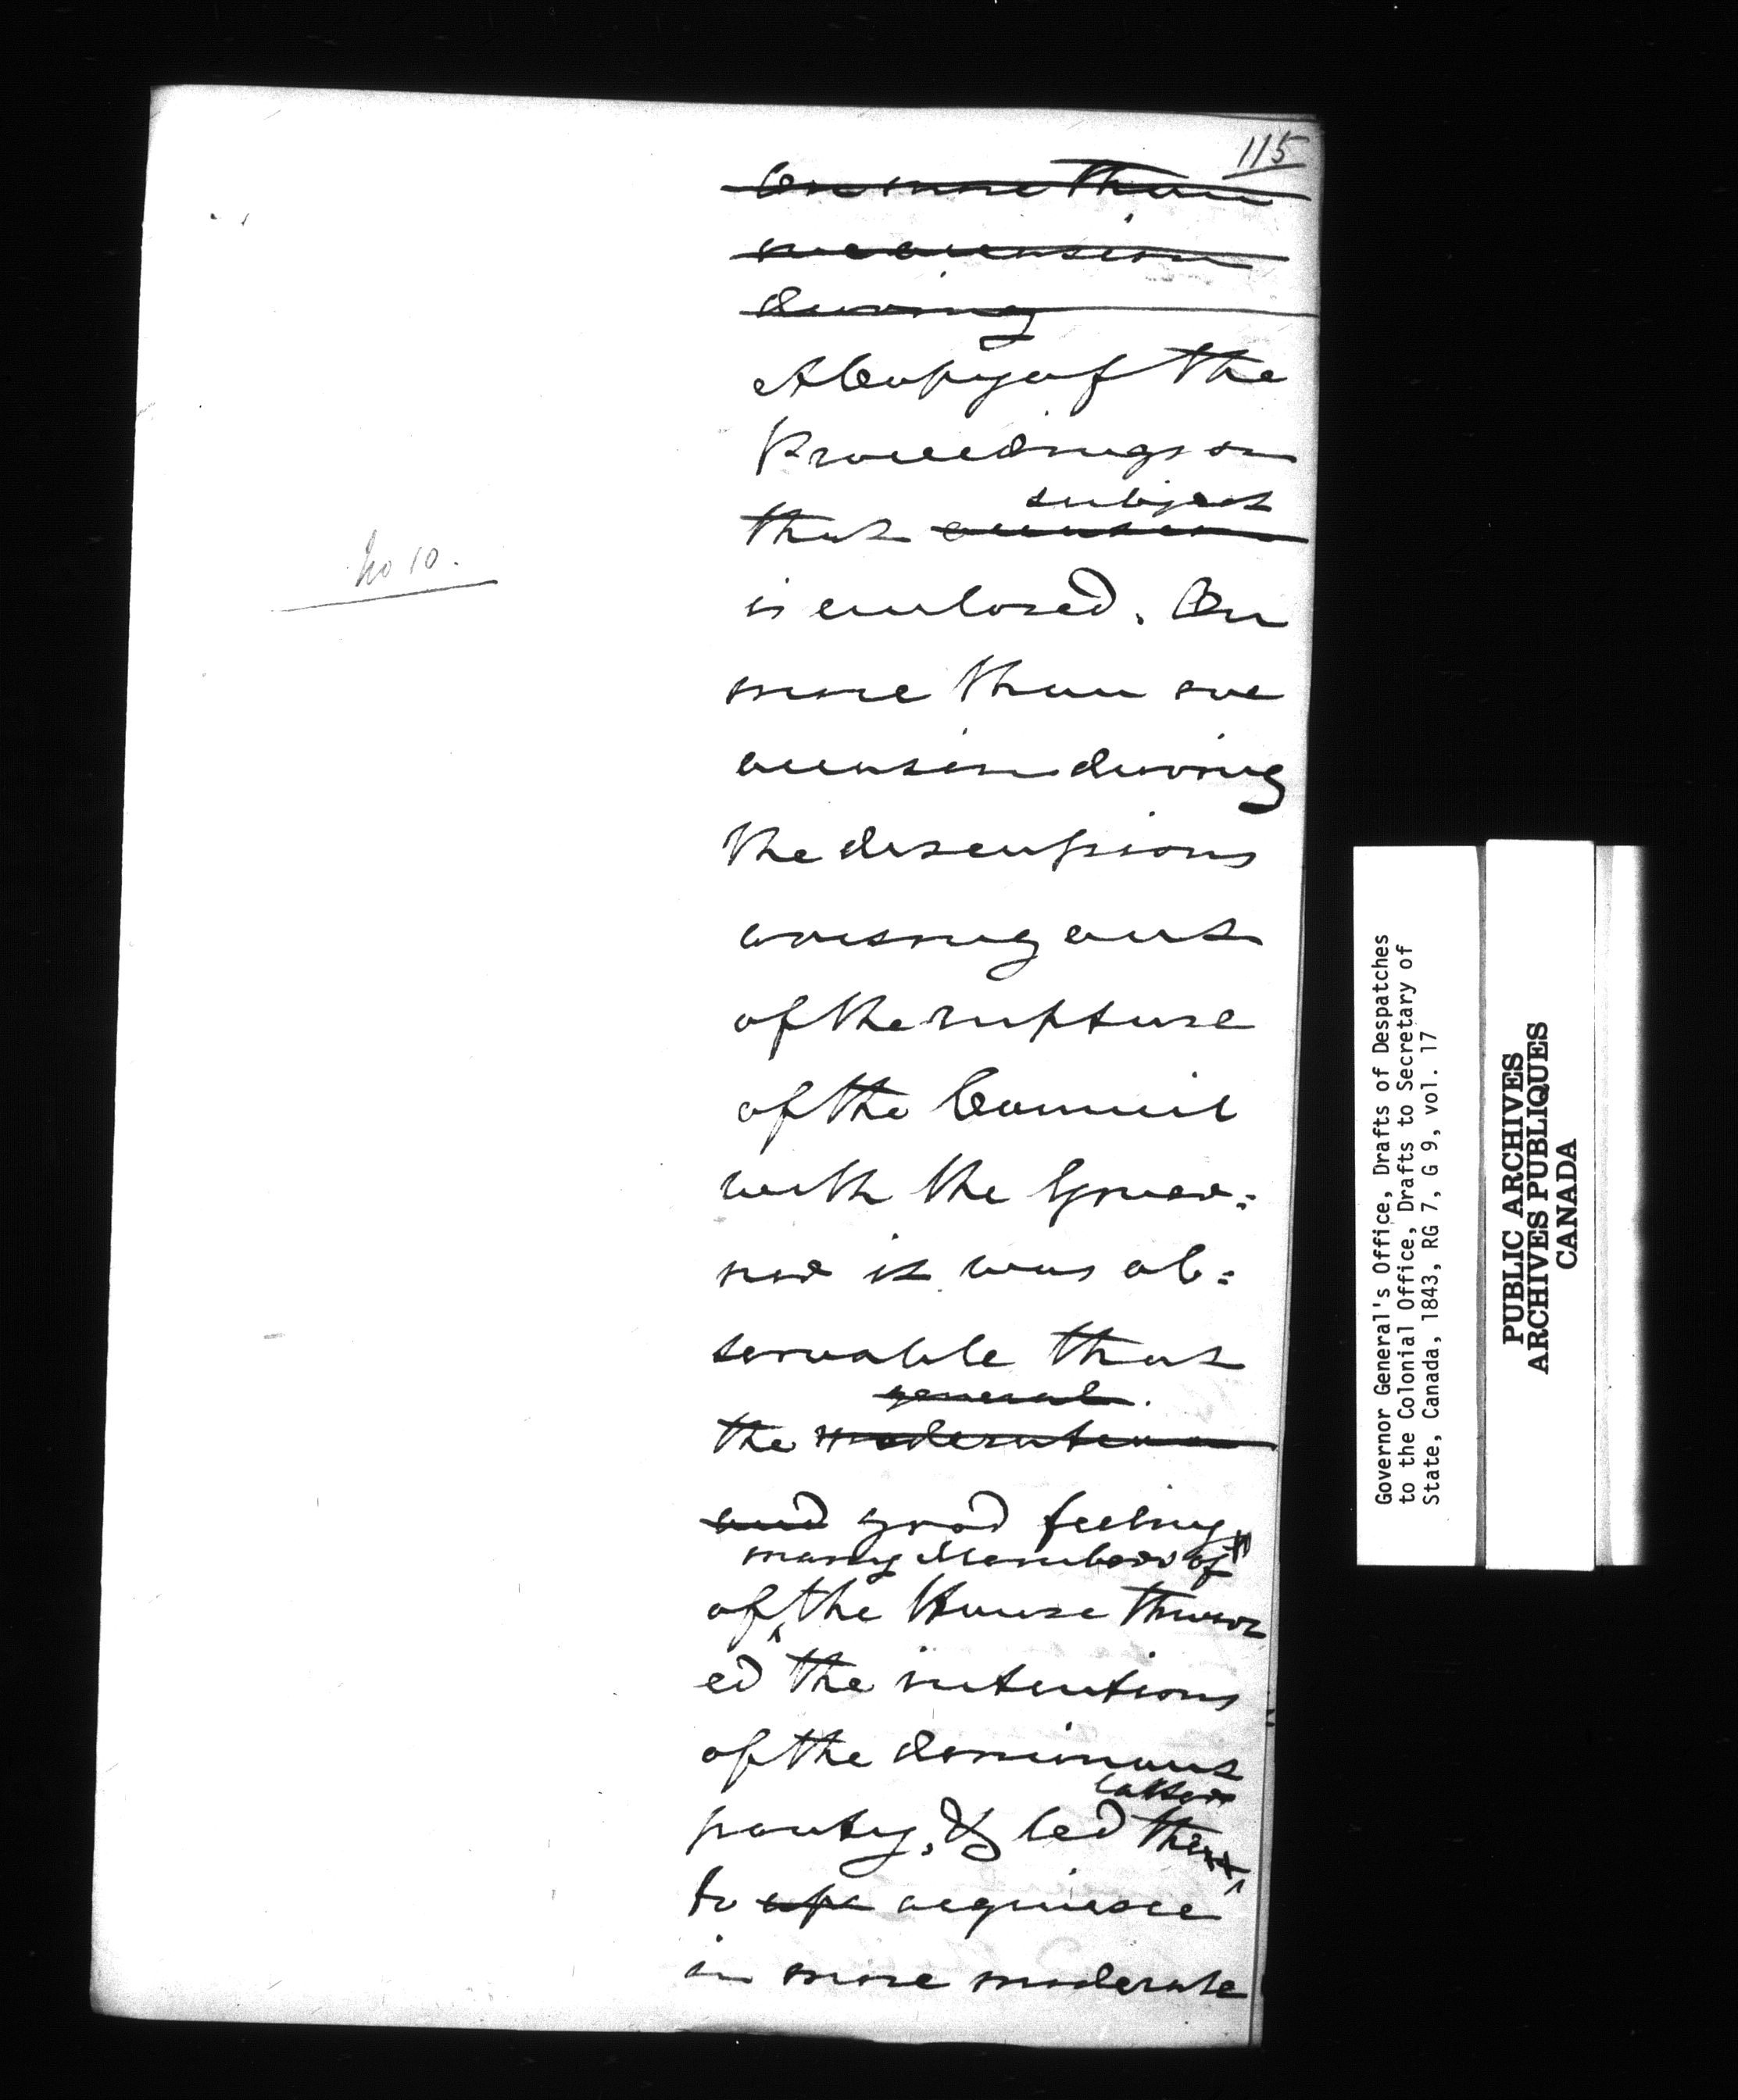 115
On more than
one occasion
during
A Copy of the
Proceedings on
subject
that occasion
No 10.
is enclosed. On
more than one
occasion during
the discussions
arising out
of the rupture
of the Council
with the Gover=
nor it was ob=
servable that
general
the moderation
and good feeling
many Members of
of the House thwart
ed the intentions
of the dominant
latter
party, & led them
to acquiesce
in more moderate
Governor General's Office, Drafts of Despatches
to the Colonial Office, Drafts to Secretary of
State, Canada, 1843, RG 7, G 9, vol. 17
PUBLIC ARCHIVES
ARCHIVES PUBLIQUES
CANADA